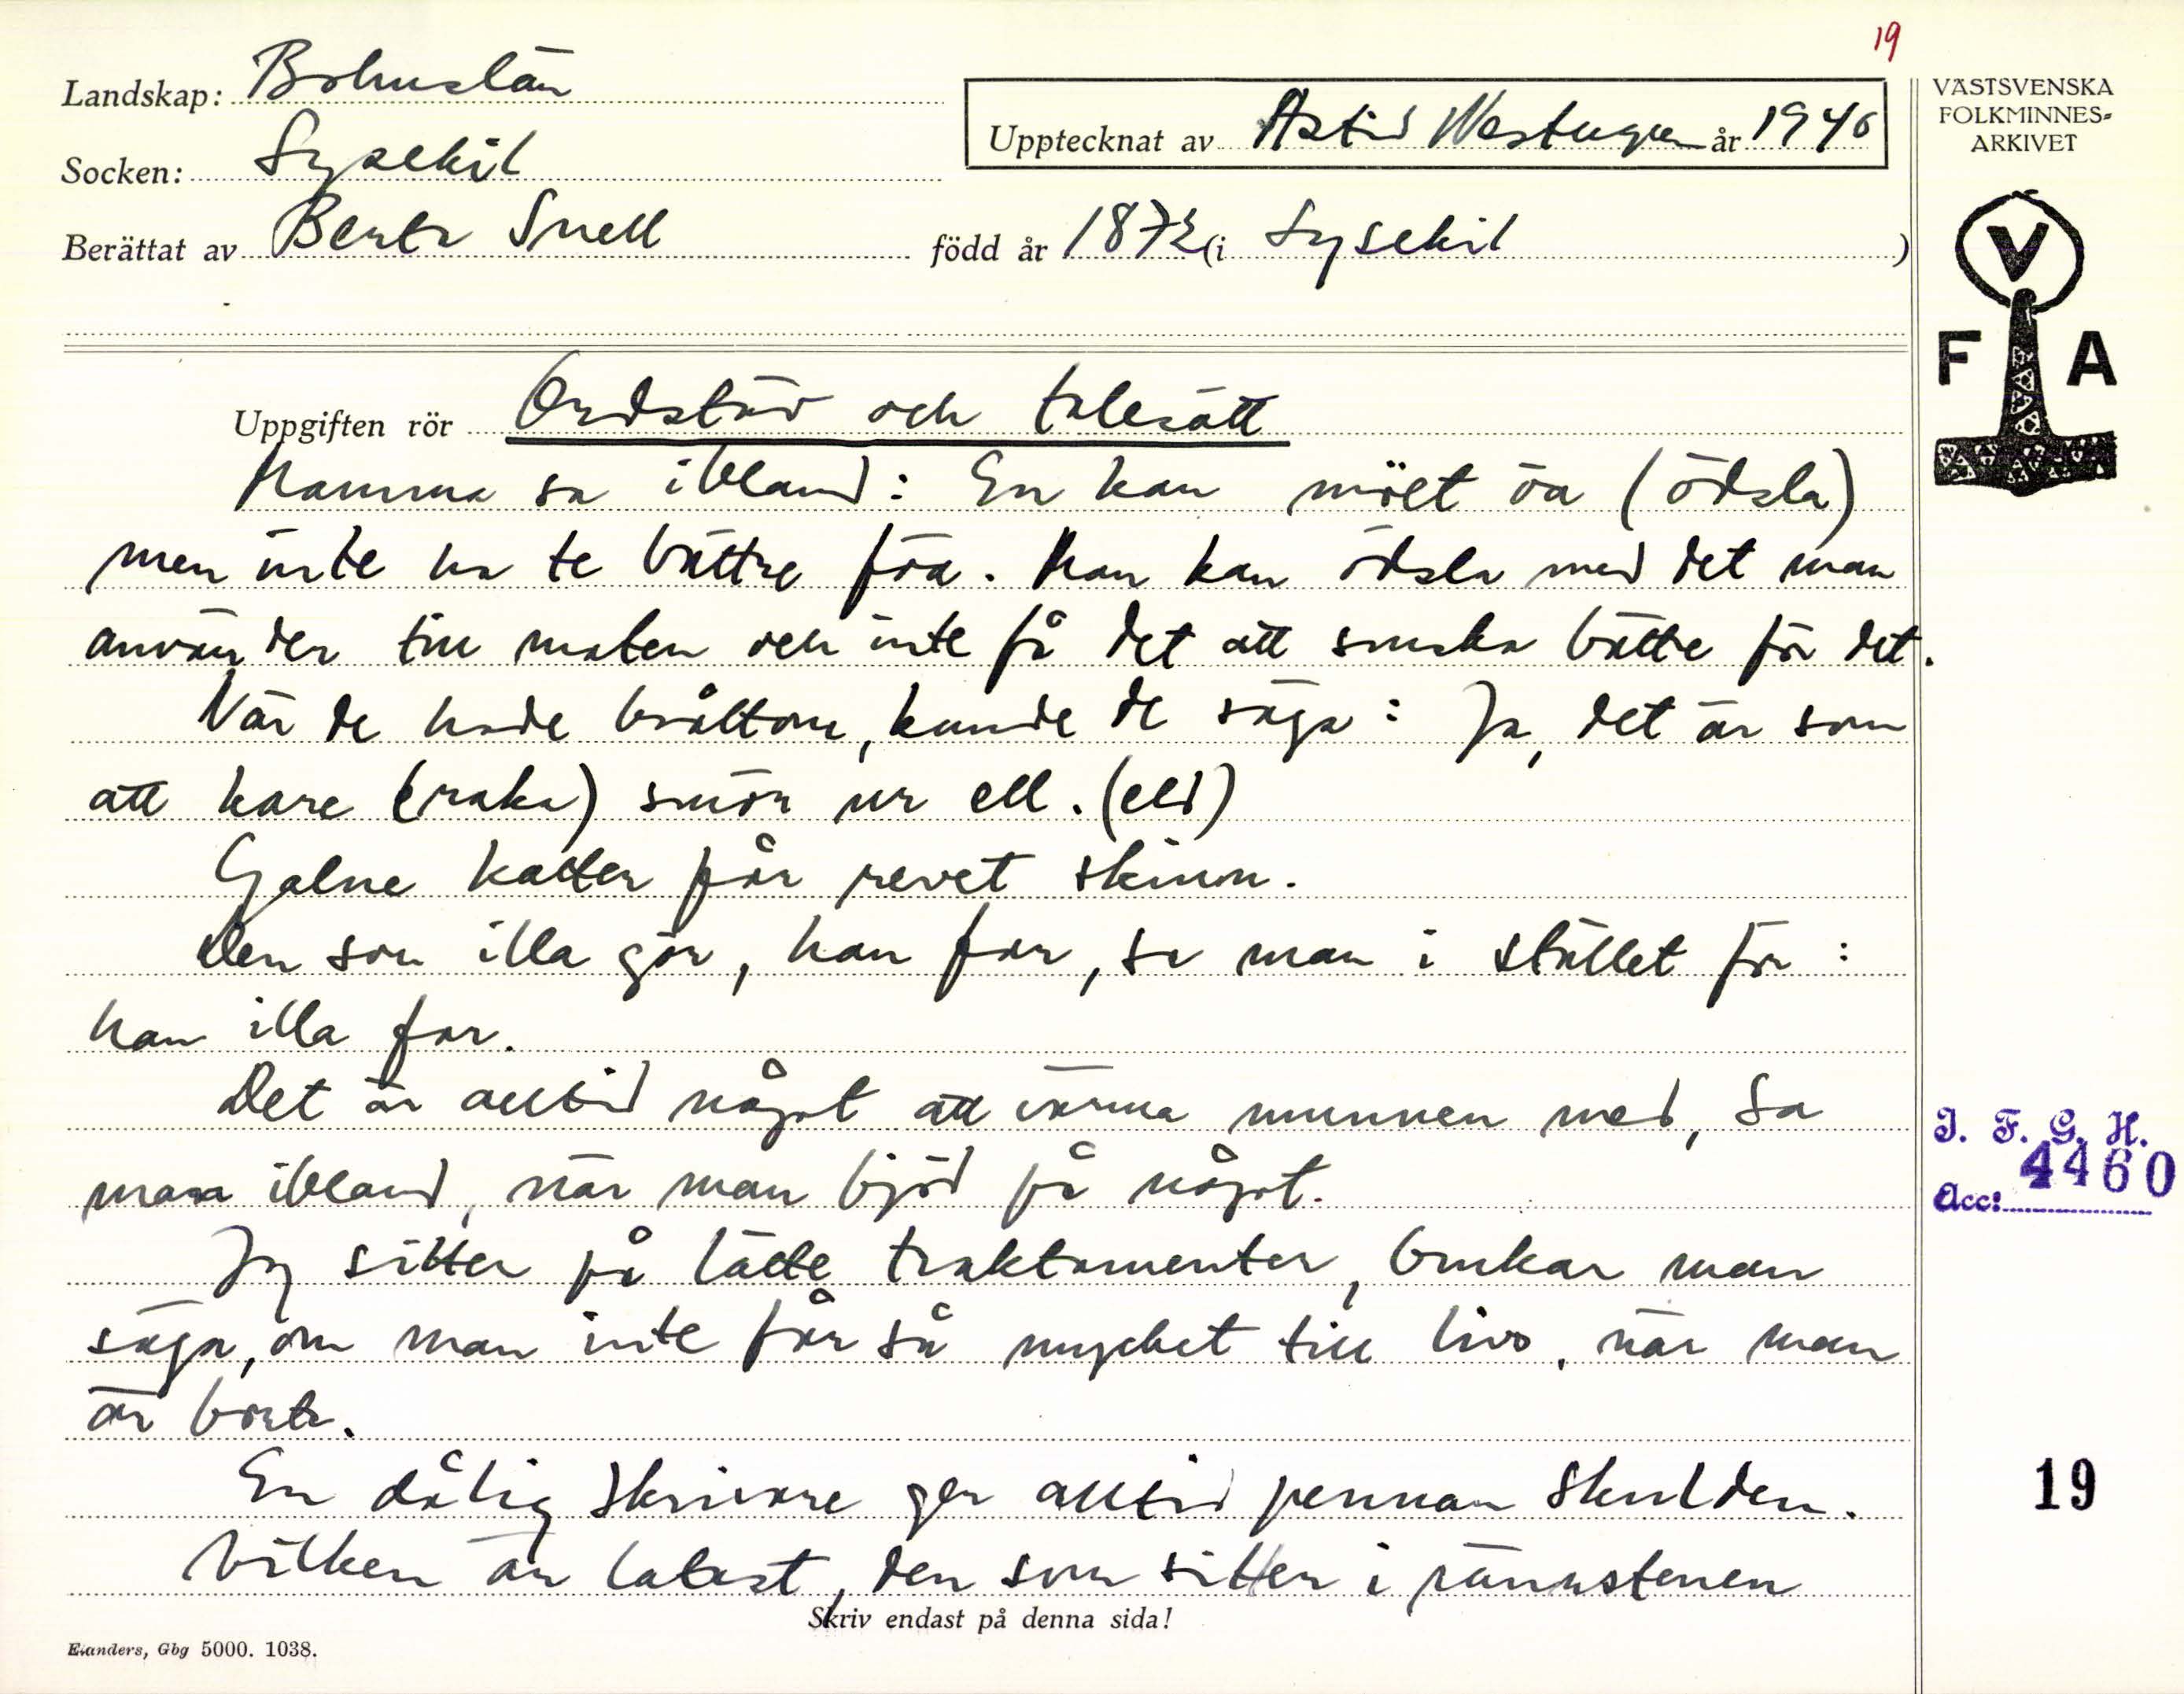 19
Landskap: Bohuslän
Socken: Lysekil
Berättat av Berta Snell
Upptecknat av Astrid Westergren år 1940
född år 1872 (i Lysekil)
VÄSTSVENSKA
FOLKMINNES-
ARKIVET
V
F A
Uppgiften rör Ordstäv och talesätt
Mamma sa ibland: En kan möet öa (ödsla)
men inte ha te bättre föa. Man kan ödsla med det man
använder till maten och inte få det att smaka bättre för det.
När de hade bråttom, kunde de säga: Ja, det är som
att kare (raka) smör ur ell. (eld)
Galne katter får revet skinn.
Den som illa gör, han far, sa man i stället för:
han illa far.
Det är alltid något att värma munnen med, sa
man ibland, när man bjöd på något.
Jag sitter på lätte traktamenter, brukar man
säga, om man inte får så mycket till livs, när man
är borta.
En dålig skrivare ger alltid pennan skulden.
Vilken är latast, den som sitter i rännstenen
Skriv endast på denna sida!
Elanders, Gbg 5000. 1038.
I. F. G. H.
Acc: 4460
19